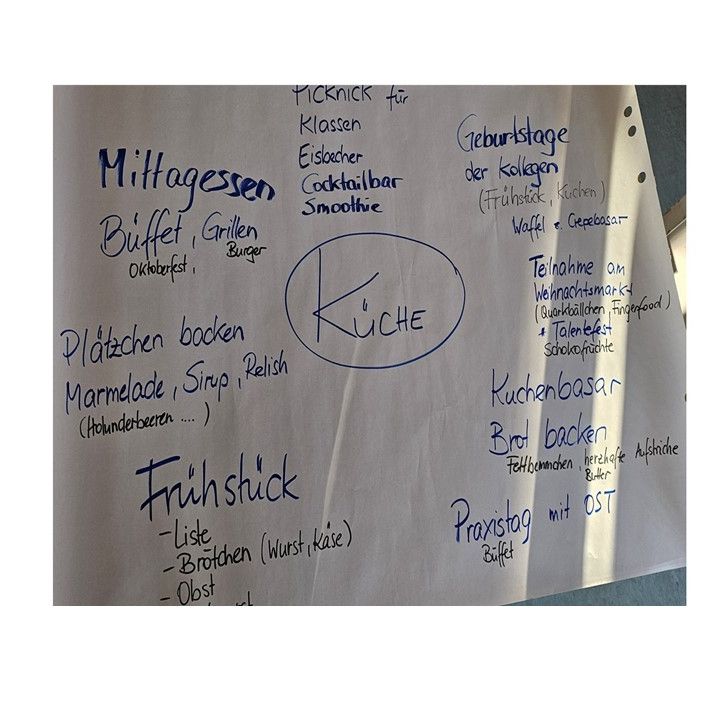 Picknick für
Klassen
Eisbecher
Cocktailbar
Smoothie
Mittagessen
Büffet, Grillen
Oktoberfest, Burger
Plätzchen backen
Marmelade, Sirup, Relish
(Holunderbeeren .... )
Frühstück
- Liste
- Brötchen (Wurst, Käse)
- Obst
KÜCHE
Geburtstage
der Kollegen
(Frühstück, Kuchen)
Waffel + Crepebasar
Teilnahme am
Weihnachtsmarkt
(Quarkbällchen, Fingerfood)
+ Talentefest
Schokofrüchte
Kuchenbasar
Brot backen
Fettbemmchen, herzhafte Aufstriche
Butter
Praxistag mit OST
Büffet